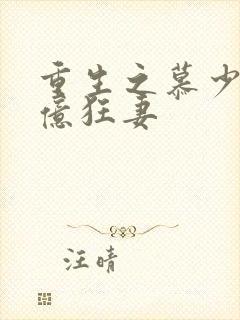 重生之慕少
億狂妻
汪晴